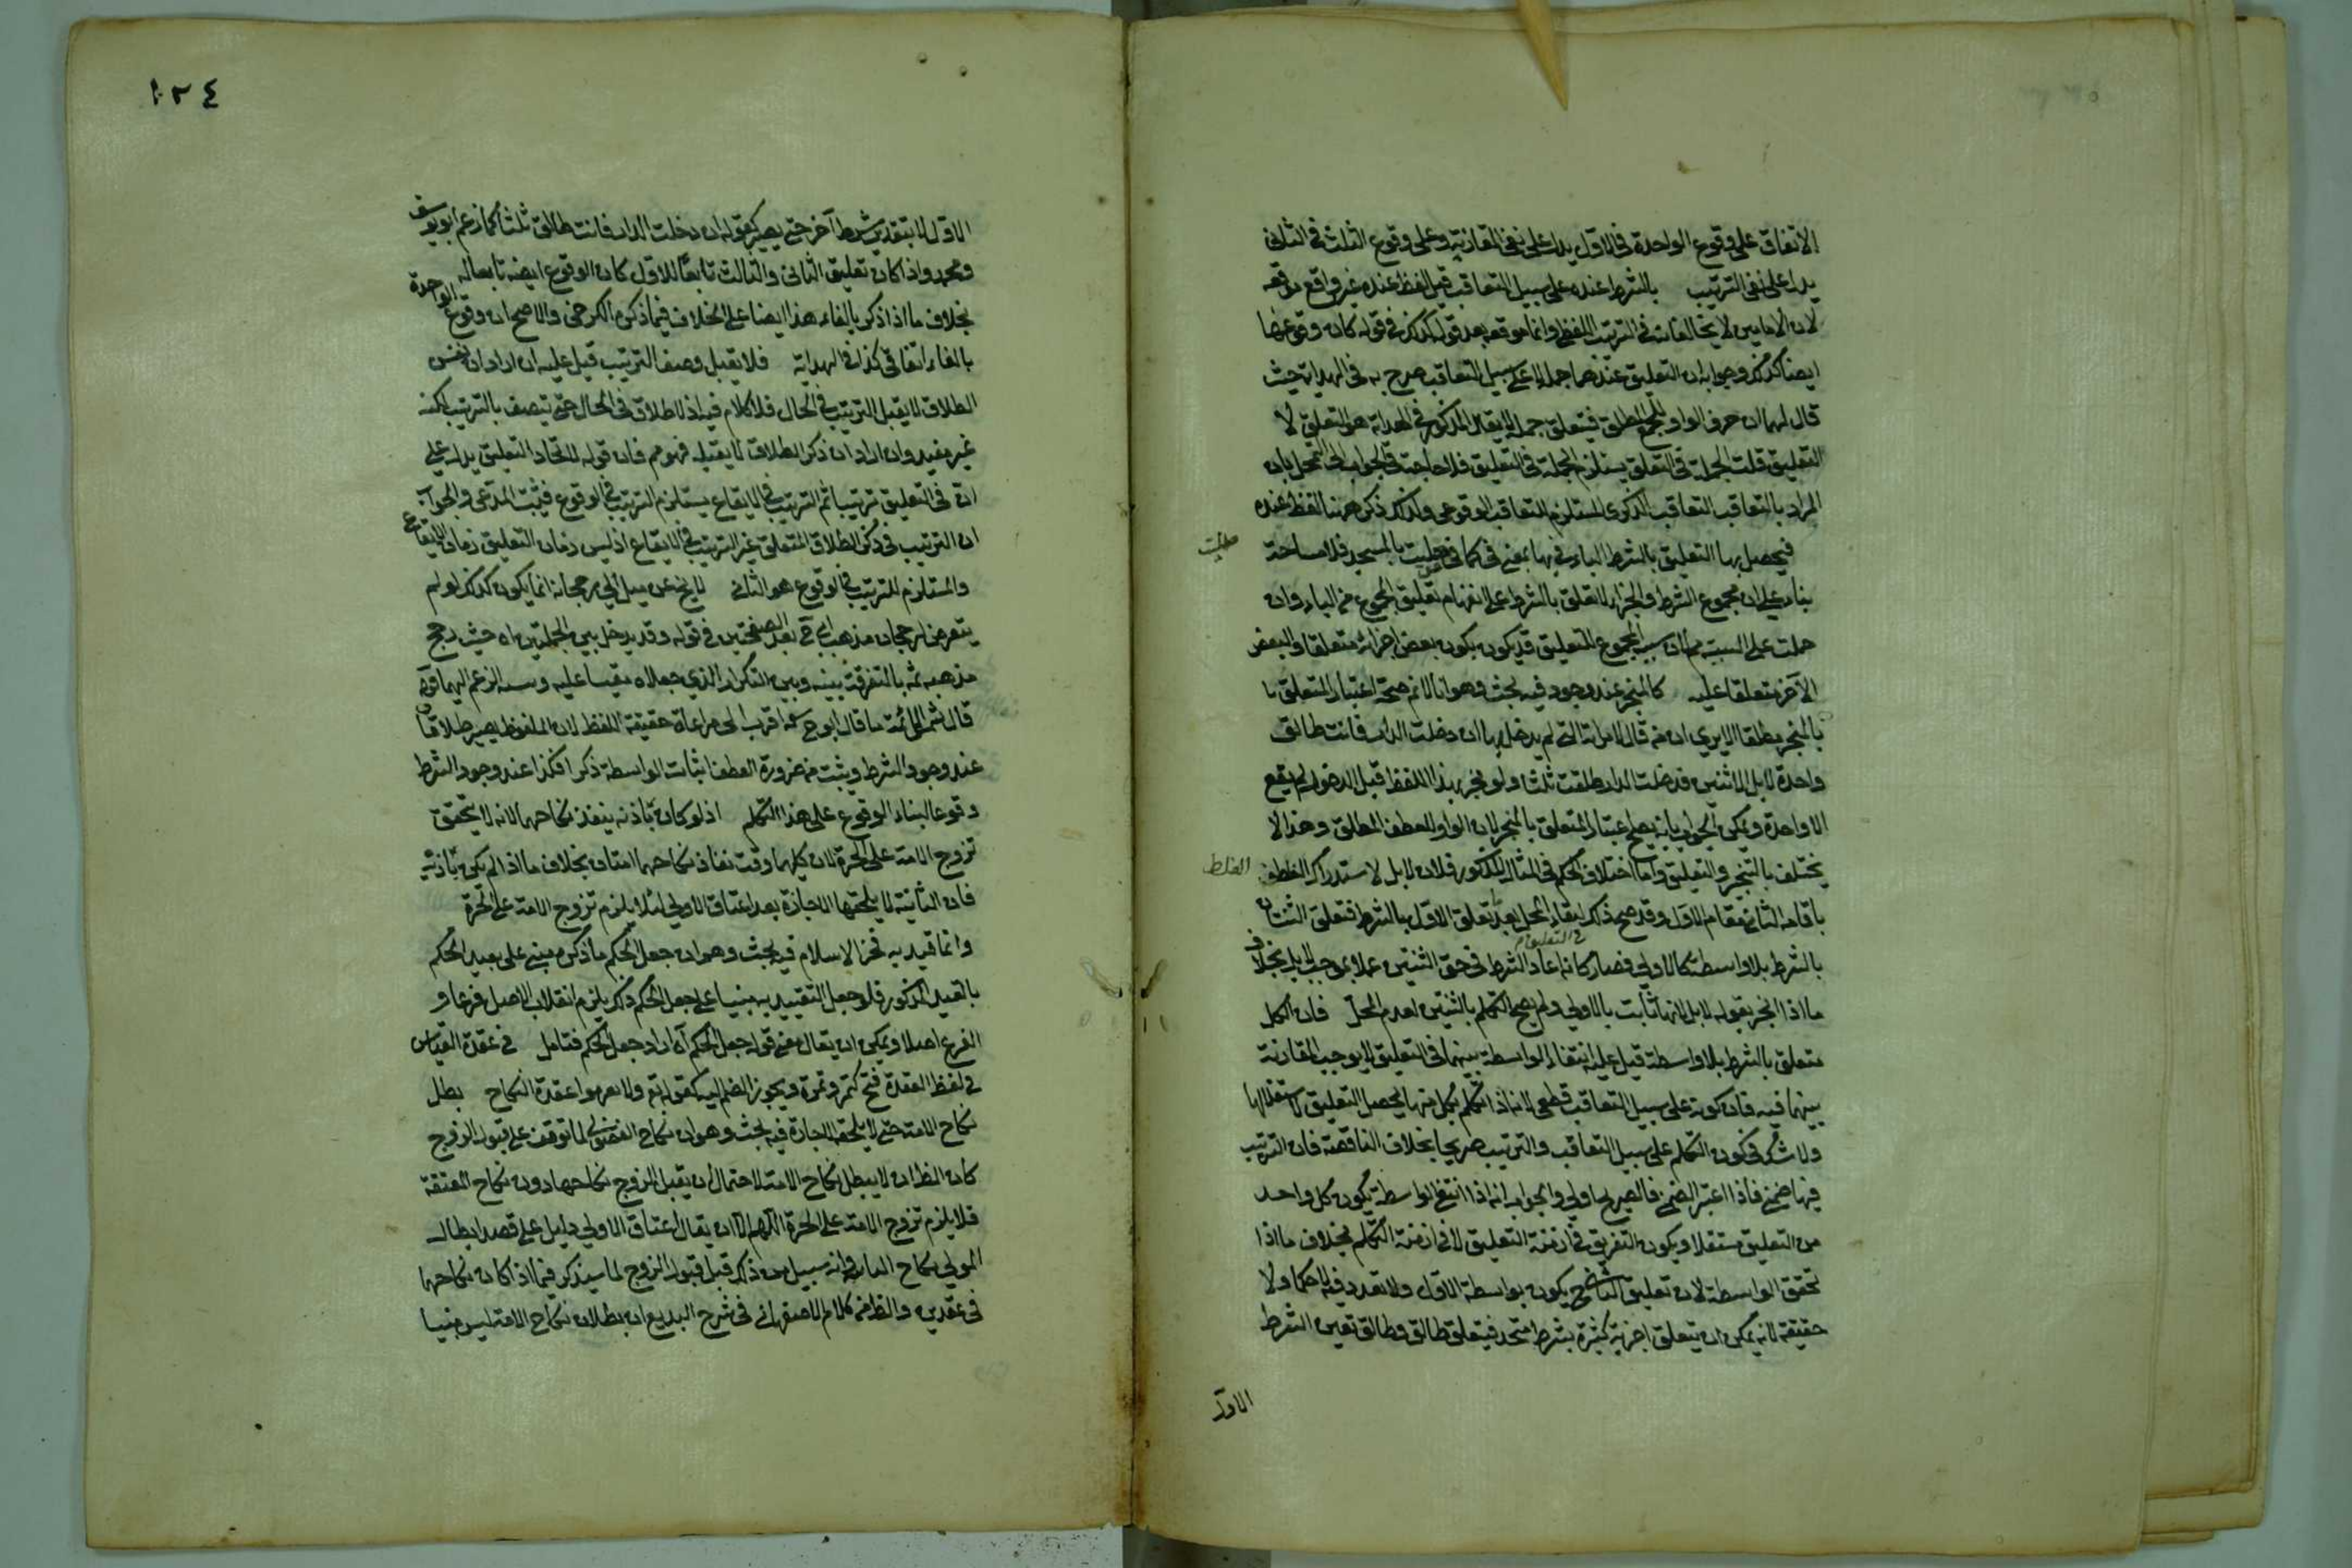 الاتفاق على وقوع الواحدة في الاول يدل على نفي المقارنة وعلى وقوع الثلث في الثاني
يدل على نفي الترتيب بالشرط عنده على سبيل التعاقب قيل لفظ عنده غير واقع موقعه
لان الامامين لا يخالفانه في الترتب اللفظي وانما موقعه بعد قوله كذلك في قوله كان وقوعها
ايضا كذلك وجوابه ان التعليق عندهما جملة لا على سبيل التعاقب صرح به في الهداية حيث
قال لهما ان حرف الواو للجمع المطلق فيتعلق جملة لا يقال المذكور في الهداية هو التعلق لا
التعليق قلت الجملة في التعلق يستلزم الجملة في التعليق فلا حاجة في الجواب الى التمحل بان
المراد بالتعاقب التعاقب الذكري المستلزم للتعاقب الوقوعي ولذلك ذكر ههنا لفظ عنده
فيحصل بها التعليق بالشرط الباء فيها بمعنى في كما في صليت بالمسجد فلا مسامحة
صليت
بناء على ان مجموع الشرط والجزاء لا تعلق بالشرط على انفهام تعليق المجموع من الباء وان
حملت على السببية مم لان سبب المجموع للتعليق قد يكون بكون بعض اجزائه متعلقا والبعض
الآخر متعلقا عليه كالمنجز عند وجود فيه بحث وهو انا لا نم صحة اعتبار المتعلق
بالمنجز مطلقا الا يرى ان من قال لامرأته التي لم يدخل بها ان دخلت الدار فانت طالق
واحدة لا بل اثنتين فدخلت الدار طلقت ثلثا ولو نجز بهذا اللفظ قبل الدخول لم يقع
الا واحدة ويمكن الجواب بانه يصح اعتبار المتعلق بالمنجز لان الواو للعطف المطلق وهذا لا
يختلف بالتنجيز والتعليق واما اختلاف الحكم في المثال المذكور فلان لا بل لاستدراك الغلط
الغلط
باقامة الثاني مقام الاول وقد صح ذلك لبقاء المحل بعد تعلق الاول بالشرط فتعلق الثنتان
في التعليق م
بالشرط بلا واسطة كالاولى فصار كانه اعاد الشرط في حق الثنتين عملا بموجب لا بل بخلاف
ما اذا نجز بقوله لا بل لانها ثابت بالاولى ولم يصح التكلم بالثنتين لعدم المحل فان الكل
متعلق بالشرط بلا واسطة قيل عليه انتفاء الواسطة بينهما في التعليق لا يوجب المقارنة
بينهما فيه فان كونه على سبيل التعاقب قطعي لانه اذا تكلم بكل منها يحصل التعليق لاستقلالها
ولا شك في كون التكلم على سبيل التعاقب والترتيب صريحا بخلاف الناقصة فان الترتيب
فيها ضمني فاذا اعتبر الضمني فالصريح اولى والجواب انه اذا انتفى الواسطة يكون كل واحد
من التعليق مستقلا ويكون التفريق في ازمنة التعليق لا في ازمنة التكلم بخلاف ما اذا
تحقق الواسطة لان تعليق الثاني ح يكون بواسطة الاول ولا تعدد فيه لا حكما ولا
حقيقة لانه يمكن ان يتعلق اجزية كثيرة بشرط متحد فيتعلق طالق وطالق بعين الشرط
الاول
١٢٤
الاول لا بتقدير شرط آخر حتى يصير كقوله ان دخلت الدار فانت طالق ثلثا كما زعم ابو يوسف
ومحمد واذا كان تعليق الثاني والثالث تابعا للاول كان الوقوع ايضه تابعا له
بخلاف ما اذا ذكر بالفاء هذا ايضا على الخلاف فيما ذكره الكرخي والاصح ان وقوع الواحدة
بالفاء اتفاقي كذا في الهداية فلا يقبل وصف الترتيب قيل عليه ان اراد ان نفس
الطلاق لا يقبل الترتيب في الحال فلا كلام فيه اذ لا طلاق في الحال حتى يتصف بالترتيب لكنه
غير مفيد وان اراد ان ذكر الطلاق لا يقبله فهو مم فان قوله لاتحاد التعليق يدل على
ان في التعليق ترتيبا ثم الترتيب في الايقاع يستلزم الترتيب في الوقوع فيثبت المدعى والجواب
ان الترتيب في ذكر الطلاق المتعلق غير الترتيب في الايقاع اذ ليس زمان التعليق زمان الايقاع
والمستلزم للترتيب في الوقوع هو الثاني لا يخ عن ميل الى رجحانه انما يكون كذلك لو لم
يتعرض لرجحان مذهب ابي ح بعد الصفحتين في قوله وقد يدخل بين الجملتين اه حيث رجح
مذهبه ثمة بالتفرقة بينه وبين التكرار الذي جعلاه مقيسا عليه ونسبه الزعم اليهما قوي
قال شمس الائمة ما قال ابو ح رحمه اقرب الى مراعاة حقيقة اللفظ لان الملفوظ يصير طلاقا
عند وجود الشرط ويثبت من ضرورة العطف اثبات الواسطة ذكرا فكذا عند وجود الشرط
وقوعا لبناء الوقوع على هذا التكلم اذ لو كان باذنه ينفذ نكاحهما لانه لا يتحقق
تزوج الامة على الحرة لان كليهما وقت نفاذ نكاحهما امتان بخلاف ما اذا لم يكن باذنه
فان الثانية لا يلحقها الاجازة بعد اعتاق الاولى لئلا يلزم تزوج الامة على الحرة
وانما قيد به فخر الاسلام فيه بحث وهو ان جعل الحكم ما ذكره مبني على تقييد الحكم
بالقيد المذكور فلو جعل التقييد به مبنيا على جعل الحكم ذلك يلزم انقلاب الاصل فرعا و
الفرع اصلا ويمكن ان يقال معنى قوله جعل الحكم آه اراد جعل الحكم فتامل في عقدة القياس
في لفظ العقدة فتح كتمر وتمرة ويجوز الضم اليه كقوله تع ولا تعزموا عقدة النكاح بطل
نكاح الامة حتى لا يلحقه الاجازة فيه بحث وهو ان نكاح الفضولي لما توقف على قبول الزوج
كان الظ ان لا يبطل نكاح الامة لاحتمال ان يقبل الزوج نكاحها دون نكاح المعتقة
فلا يلزم تزوج الامة على الحرة اللهم الا ان يقال اعتاق الاولى دليل على قصد ابطال
المولى نكاح الثانية وانه سبيل من ذلك قبل قبول الزوج لما سيذكر فيما اذا كان نكاحهما
في عقدين والظ من كلام الاصفهاني في شرح البديع ان بطلان نكاح الامة ليس مبنيا